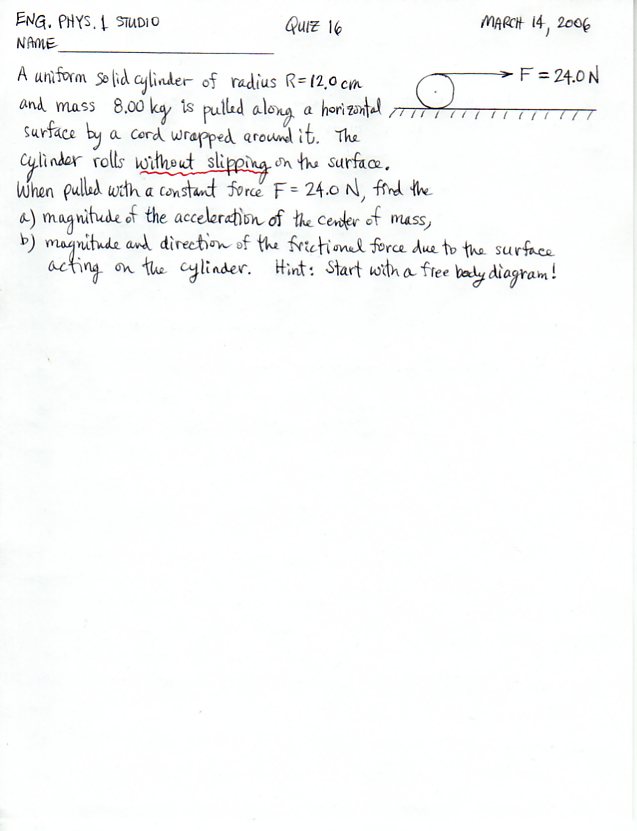 ENG. PHYS. 1 STUDIO QUIZ 16 MARCH 14, 2006
NAME
A uniform solid cylinder of radius R = 12.0 cm
and mass 8.00 kg is pulled along a horizontal
surface by a cord wrapped around it. The
cylinder rolls without slipping on the surface.
When pulled with a constant force F = 24.0 N, find the
a) magnitude of the acceleration of the center of mass,
b) magnitude and direction of the frictional force due to the surface
acting on the cylinder. Hint: Start with a free body diagram!
F = 24.0 N